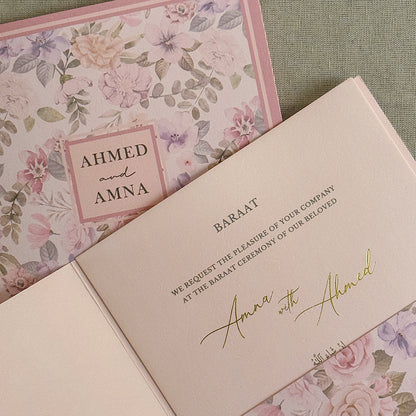 AHMED
and
AMNA
BARAAT
WE REQUEST THE PLEASURE OF YOUR COMPANY
AT THE BARAAT CEREMONY OF OUR BELOVED
Amna with Ahmed